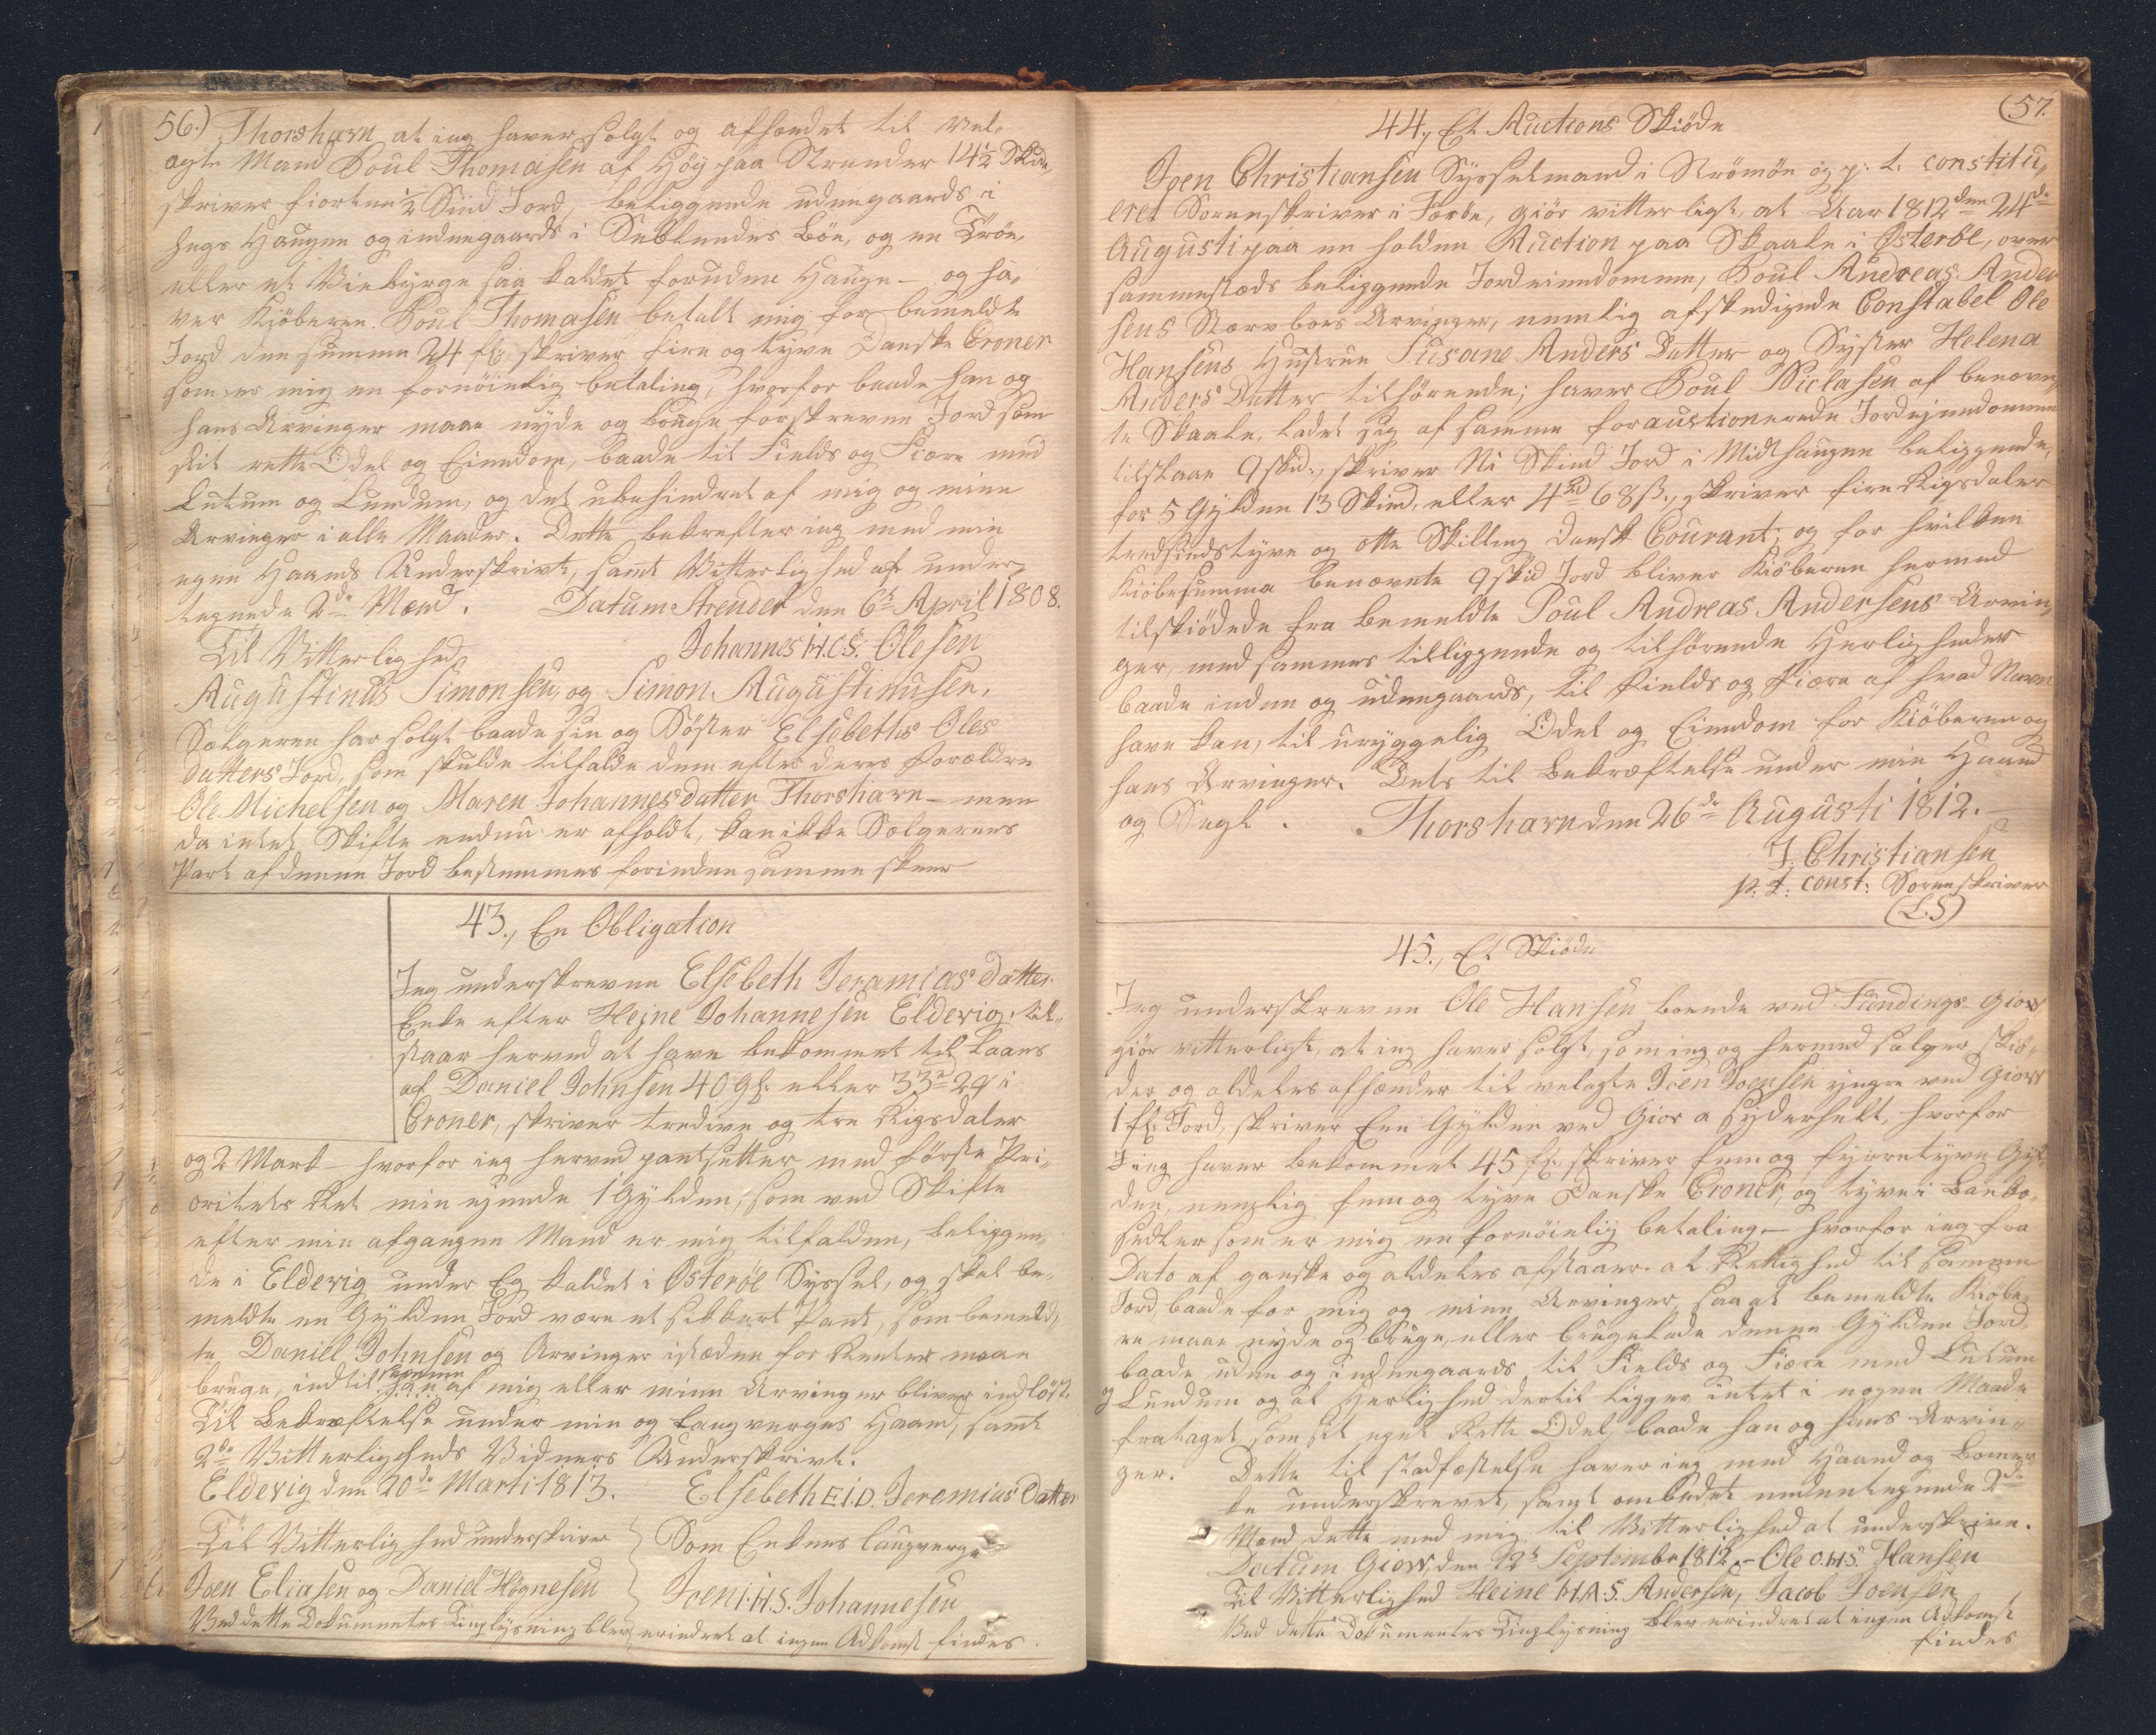 56.) Thorshavn at jeg haver solgt og afhændet til Vel-
agte Mand Poul Thomasen af Høy paa Strender 14½ Skd,
skriver fiorten ½ Skind Jord, beliggende udengaards i
Hegs Haugen og indengaards i Bøen, og en Trøe,
eller et saa kaldet foruden Hauge – og ha-
ver Kjöberen Poul Thomasen betalt mig for bemeldte
Jord den summa 24 fl: skriver fire og tyve Danske Croner
som er mig en fornöielig betaling, hvorfor baade han og
hans Arvinger maae nyde og bruge forskrevne Jord som
sit rette Odel og Eiendom, baade til Fields og Fiære med
Lutum og Lundum, og det ubehindret af mig og mine
Arvinger i alle Maader. Dette bekrefter jeg med min
egen Haands Underskrivt, samt Vitterlighed af under-
tegnede 2de Mænd. Datum Strender den 6t April 1808.
Til Vitterlighed Johannes H.O.S. Olesen
Augustinus Simonsen, og Simon Augustinusen.
Sælgeren har solgt baade sin og Söster Elsebeths Oles
datters Jord, som skulde tilfalde dem efter deres Forældre
Ole Michelsen og Maren Johannesdatter Thorshavn – men
da intet Skifte endnu er afholdt, kan ikke Sælgerens
Part af denne Jord bestemmes forinden samme skeer
43., En Obligation
Jeg underskrevne Elsebeth Jeramias datter
Enke efter Hejne Johannesen Elderig, til-
staar herved at have bekommet til Laans
af Daniel Johnsen 40 gl: eller 33rd 2 i
Croner, skriver tredive og tre Rigsdaler
og 2 Mark – hvorfor jeg herved pantsetter med förste Pri-
oritets Ret min ejende 1 Gylden, som ved Skifte
efter min afgangen Mand er mig tilfalden, beliggen-
de i Elderig under Eg kaldet i Osteröe Syssel, og skal be-
meldte en Gylden Jord være et sikkert Pant, som bemeld-
te Daniel Johnsen og Arvinger istæden for Renter maae
bruge, indtil samme af mig eller mine Arvinger bliver indlöst.
Til Bekræftelse under min og Laugverges Haand, samt
2de Vitterligheds Vidners Underskrivt.
Elderig den 20de Marti 1813. Elsebeth E.I.D. Jeremias Datter
Til Vitterlighed underskriver Som Enkens laugverge
Joen Eliasen og Daniel Högnesen Joen I.H.S. Johannesen
Ved dette Dokumentes Tinglysning blev erindret at ingen Adkomst findes.
(57.
44., Et Auctions Skiöde
Joen Christiansen Sysselmand i Strömöe og p: t: constitu-
eret Sorenskriver i Færöe, giör vitterligt, at Aar 1812 den 24de
Augusti paa en holden Auction paa Skaale i Österöe, over
sammestæds beliggende Jordeiendomme, Poul Andreas Ander
sens Arvinger, nemlig afskedigede Constabel Ole
Hansens Hustrue Susane Anders Datter og Syster Helena
Anders Datter tilhörende; haver Poul Niclasen af benævn-
te Skaale, ladet sig af samme forauctionerede Jordejendomme
tilslaae 9 skd:, skriver Ni Skind Jord i Midthaugen beliggende,
for 5 Gylden 13 Skind, eller 4rd 68 ß., skriver fire Rigsdaler
tredsindstyve og otte Skilling Dansk Courant; og for hvilken
Kiöbesumma benævnte 9 skd Jord bliver Kiöberen hermed
tilskiödede fra bemeldte Poul Andreas Andersens Arvin-
ger, med sammes tilliggende og tilhörende Herligheder
baade inden og udengaards, til Fields og Fiære af hvad Navn
have kan, til uryggelig Odel og Eiendom for Kiöberen og
hans Arvinger. Dets til Bekræftelse under min Haand
og Segl. Thorshavn den 26de Augusti 1812.
J. Christiansen
p. t. const: Sorenskriver
(L.S)
45., Et Skiöde
Jeg underskrevne Ole Hansen boende ved Fundings Giow
giör vitterligt, at jeg haver solgt, som jeg og hermed sælger, skiö-
der og aldeles afhænder til velagte Joen Joensen yngre ved Giow
1 fl: Jord, skriver Een Gylden ved Giov a Syderhelt, hvorfor
jeg haver bekommet 45 fl: skriver fem og fyrretyve Gyl-
den, nemlig fem og tyve Danske Croner, og tyve i Banko-
sedler som er mig en fornöielig betaling – hvorfor jeg fra
Dato af ganske og aldeles afstaaer al Rettighed til samme
Jord, baade for mig og mine Arvinger, saa at bemeldte Kiöbe-
re maae nyde og bruge, eller bruge lade denne Gylden Jord
baade uden og indengaards til Fields og Fiære med Lutum
og Lundum og al Herlighed dertil ligger, intet i nogen Maade
frataget, som sit eget Rette Odel, baade han og hans Arvin-
ger. Dette til stadfæstelse haver jeg med Haand og Bomer-
ke underskrevet, samt ombedet nedentegnede 2de
Mænd dette med mig til Vitterlighed at underskrive.
Datum Giow, den 12t Septembr 1812. – Ole O.H.S. Hansen
Til Vitterlighed Heine H.A.S. Andersen, Jacob Joensen
Ved dette Dokumentes Tinglysning blev erindret at ingen Adkomst
findes